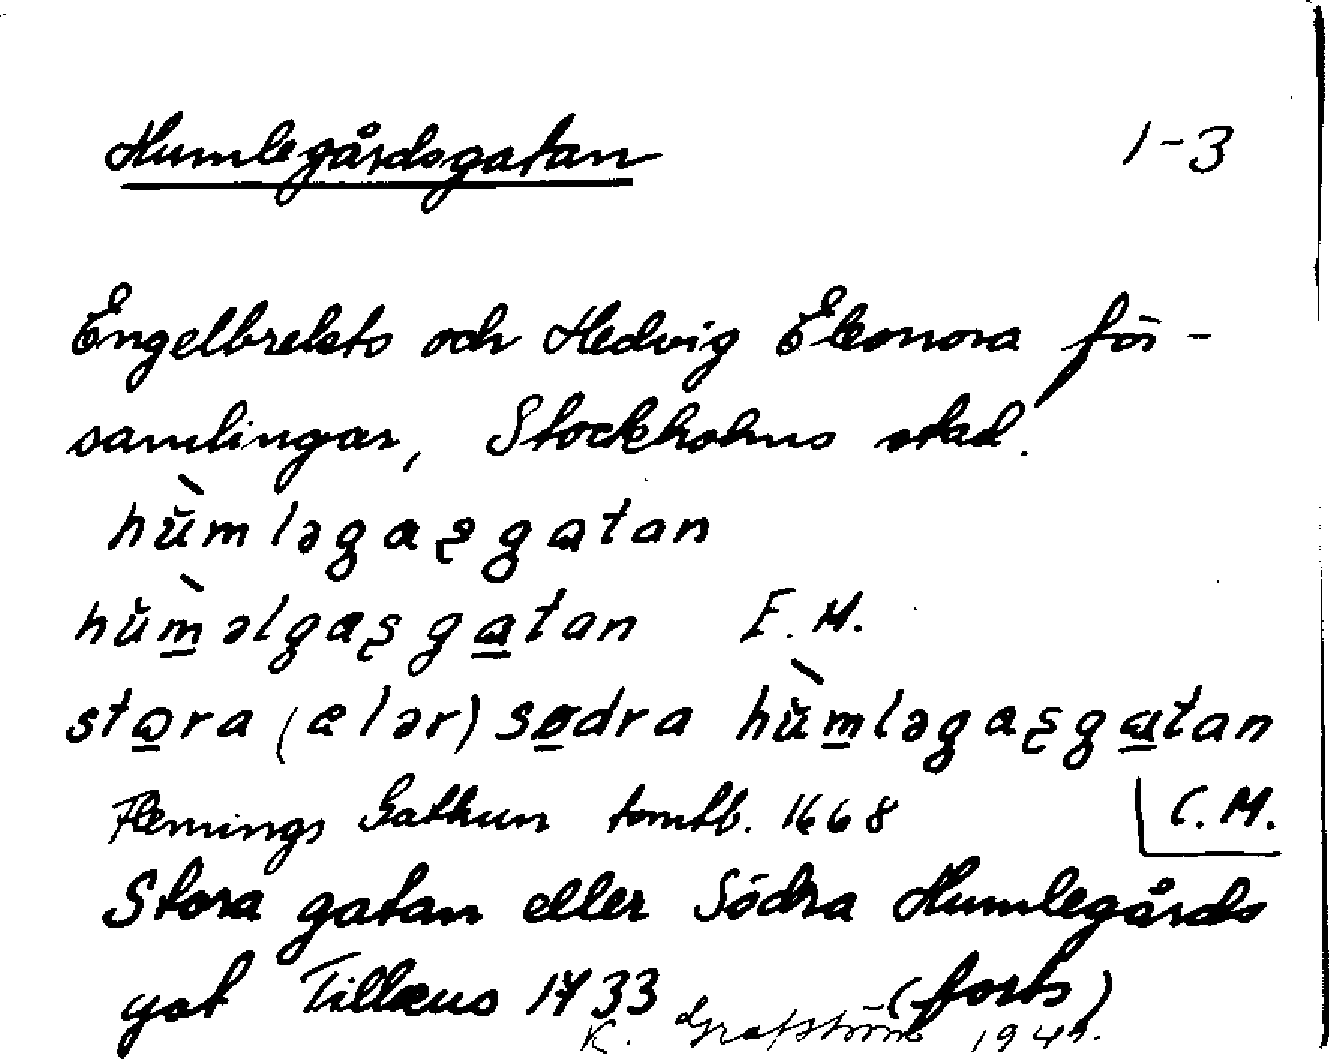 Humlegårdsgatan 1-3
Engelbrekts och Hedvig Eleonora för-
samlingar, Stockholms stad.
hùmləgaʂgatan
hùməlgaʂgatan E. M.
stora (ælər) sødra hùmləgaʂgatan
Flemings Gathun tomtb. 1668 C. M.
Stora gatan eller Södra Humlegårds
gat Tillæus 1733 (forts)
K. Grafström 1949.